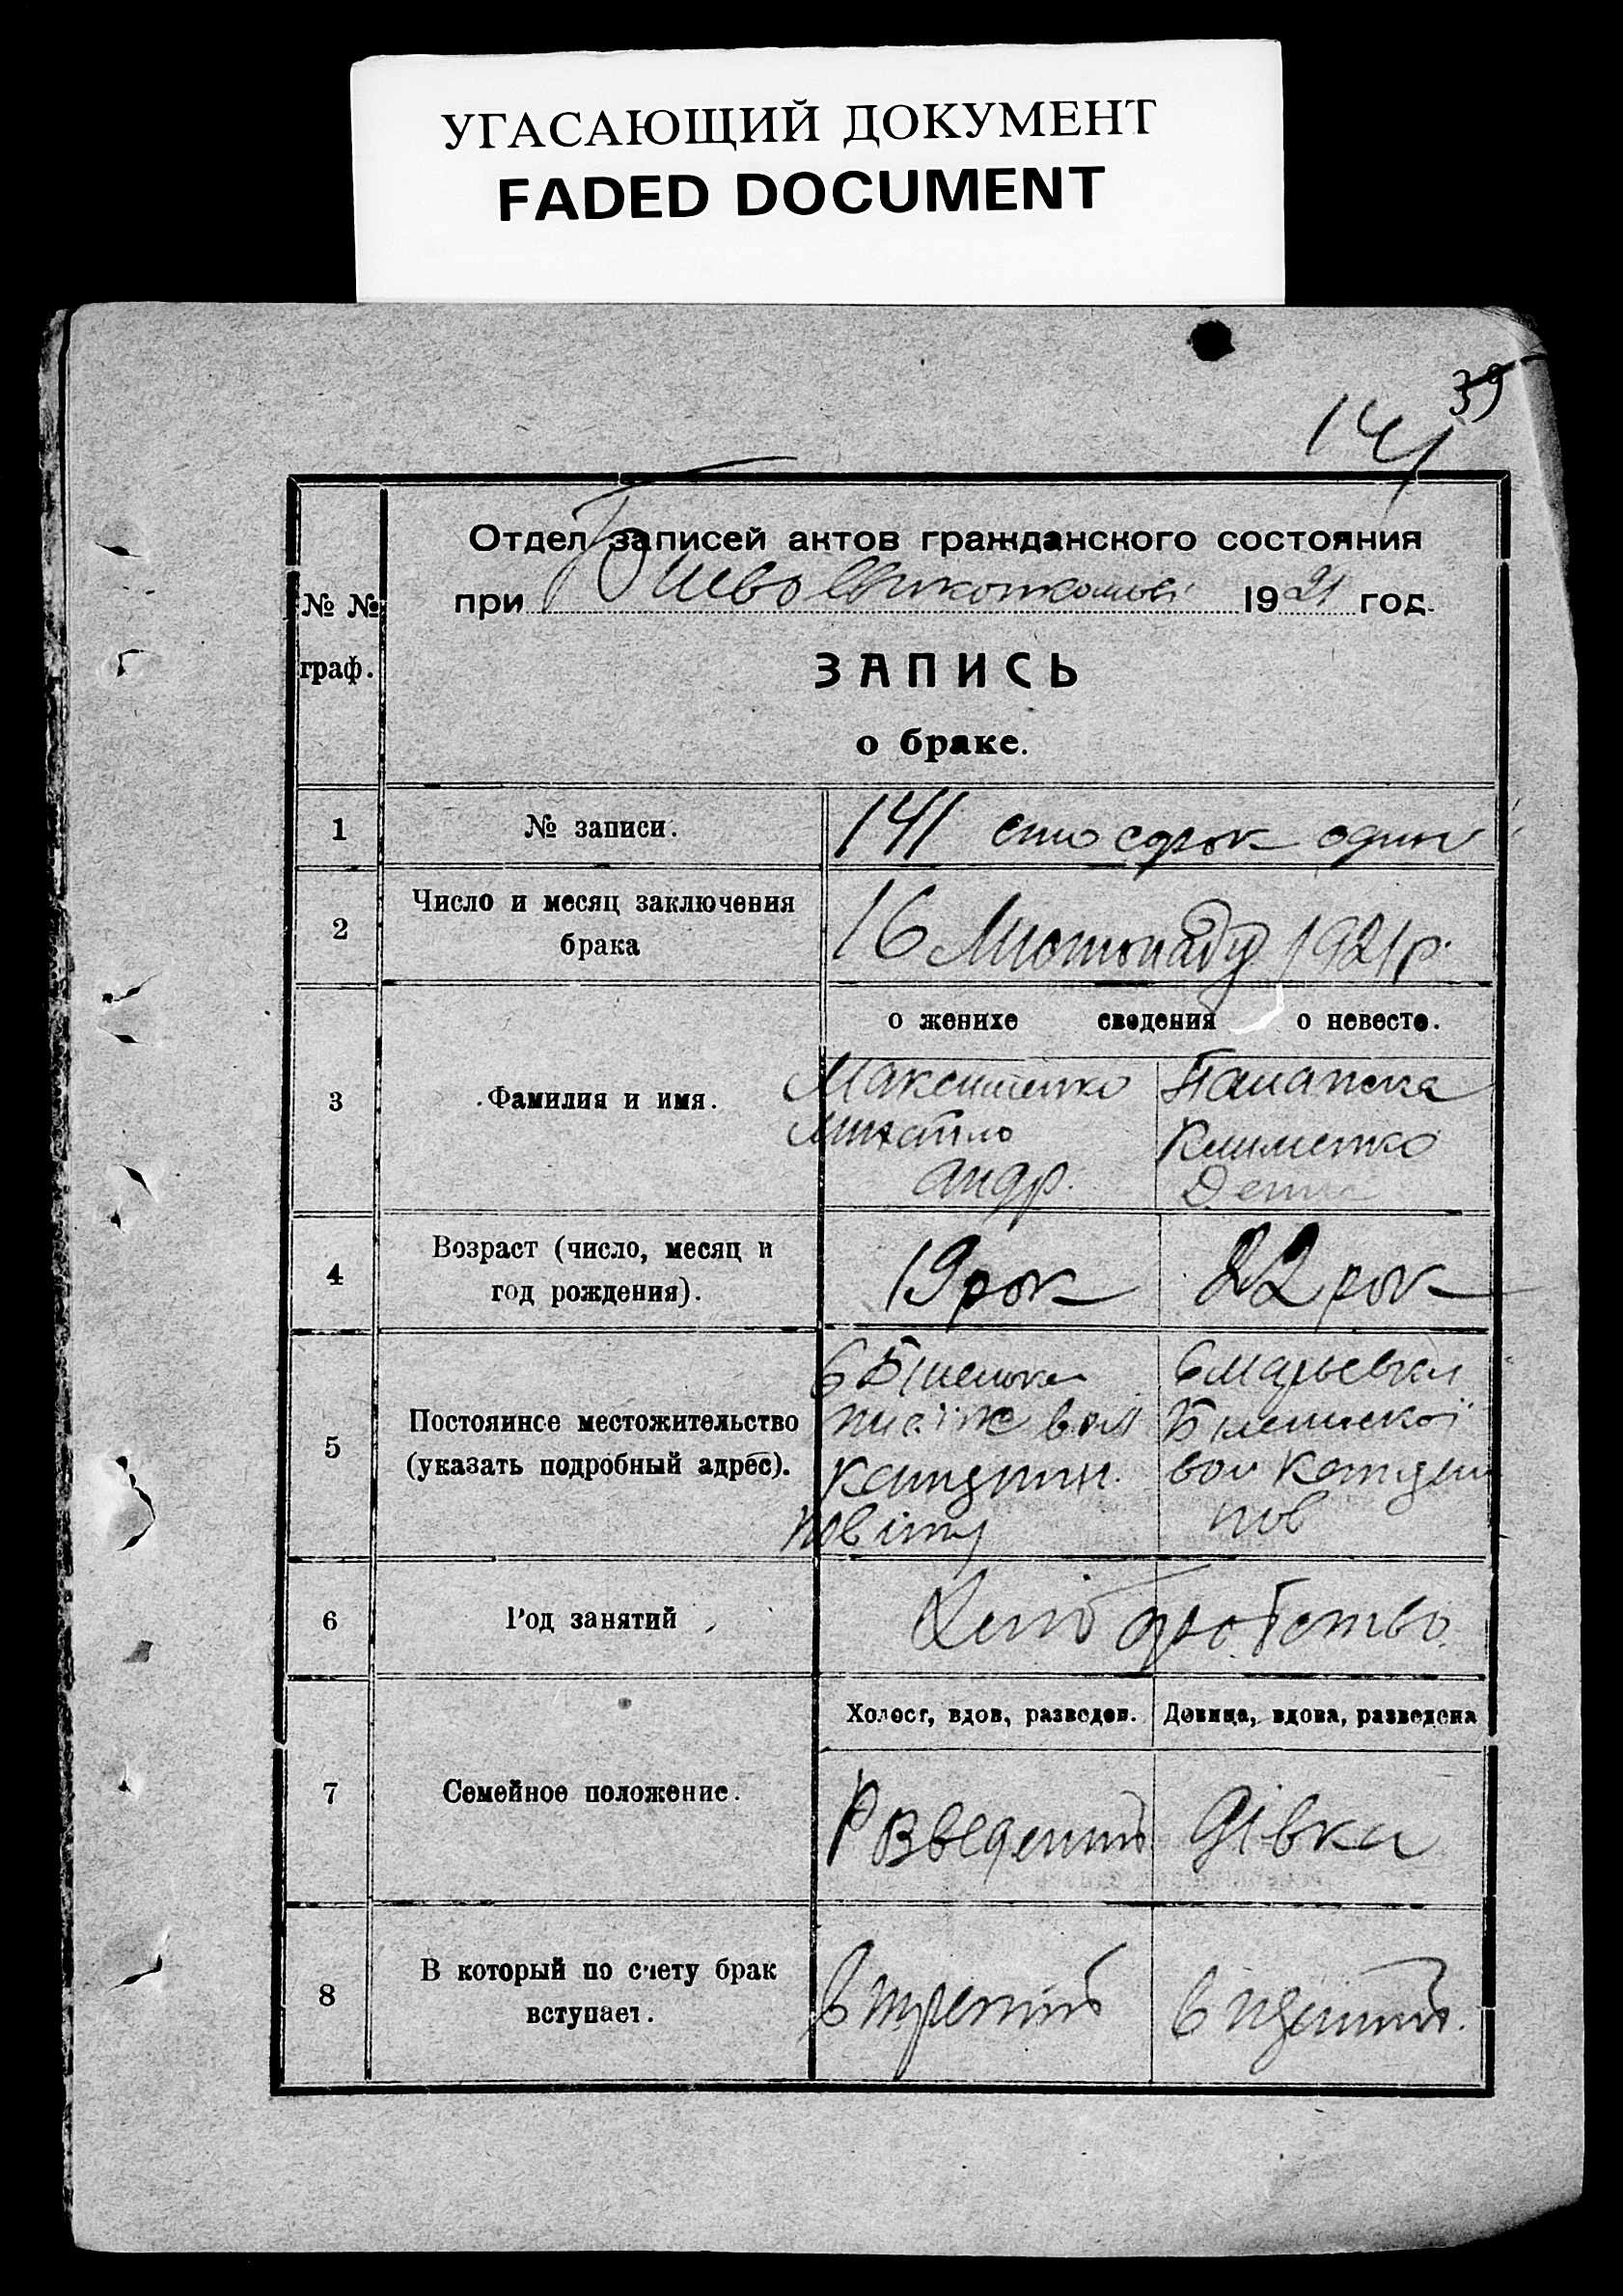 УГАСАЮЩИЙ ДОКУМЕНТ
FADED DOCUMENT
39
141
Отдел записей актов гражданского состояния
при 1921 год.
№ №
граф.
ЗАПИСЬ
о браке.
1 № записи. 141 сто сорок один
2 Число и месяц заключения
брака 16 Листопаду 1921 р.
о женихе сведения о невесте.
3 Фамилия и имя. Максименко
Михайло Клименко
Андр.
4 Возраст (число, месяц и
год рождения). 19 рок 22 рок
5 Постоянное местожительство
(указать подробный адрес).
вол
повіту пов
6 Род занятий Хліборобство.
Холост, вдов, разведен. Девица, вдова, разведена
7 Семейное положение. Розведений Дівка
8 В который по счету брак
вступает. в третій в перший.